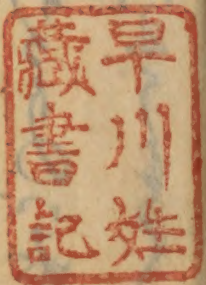 早川姓
藏書記